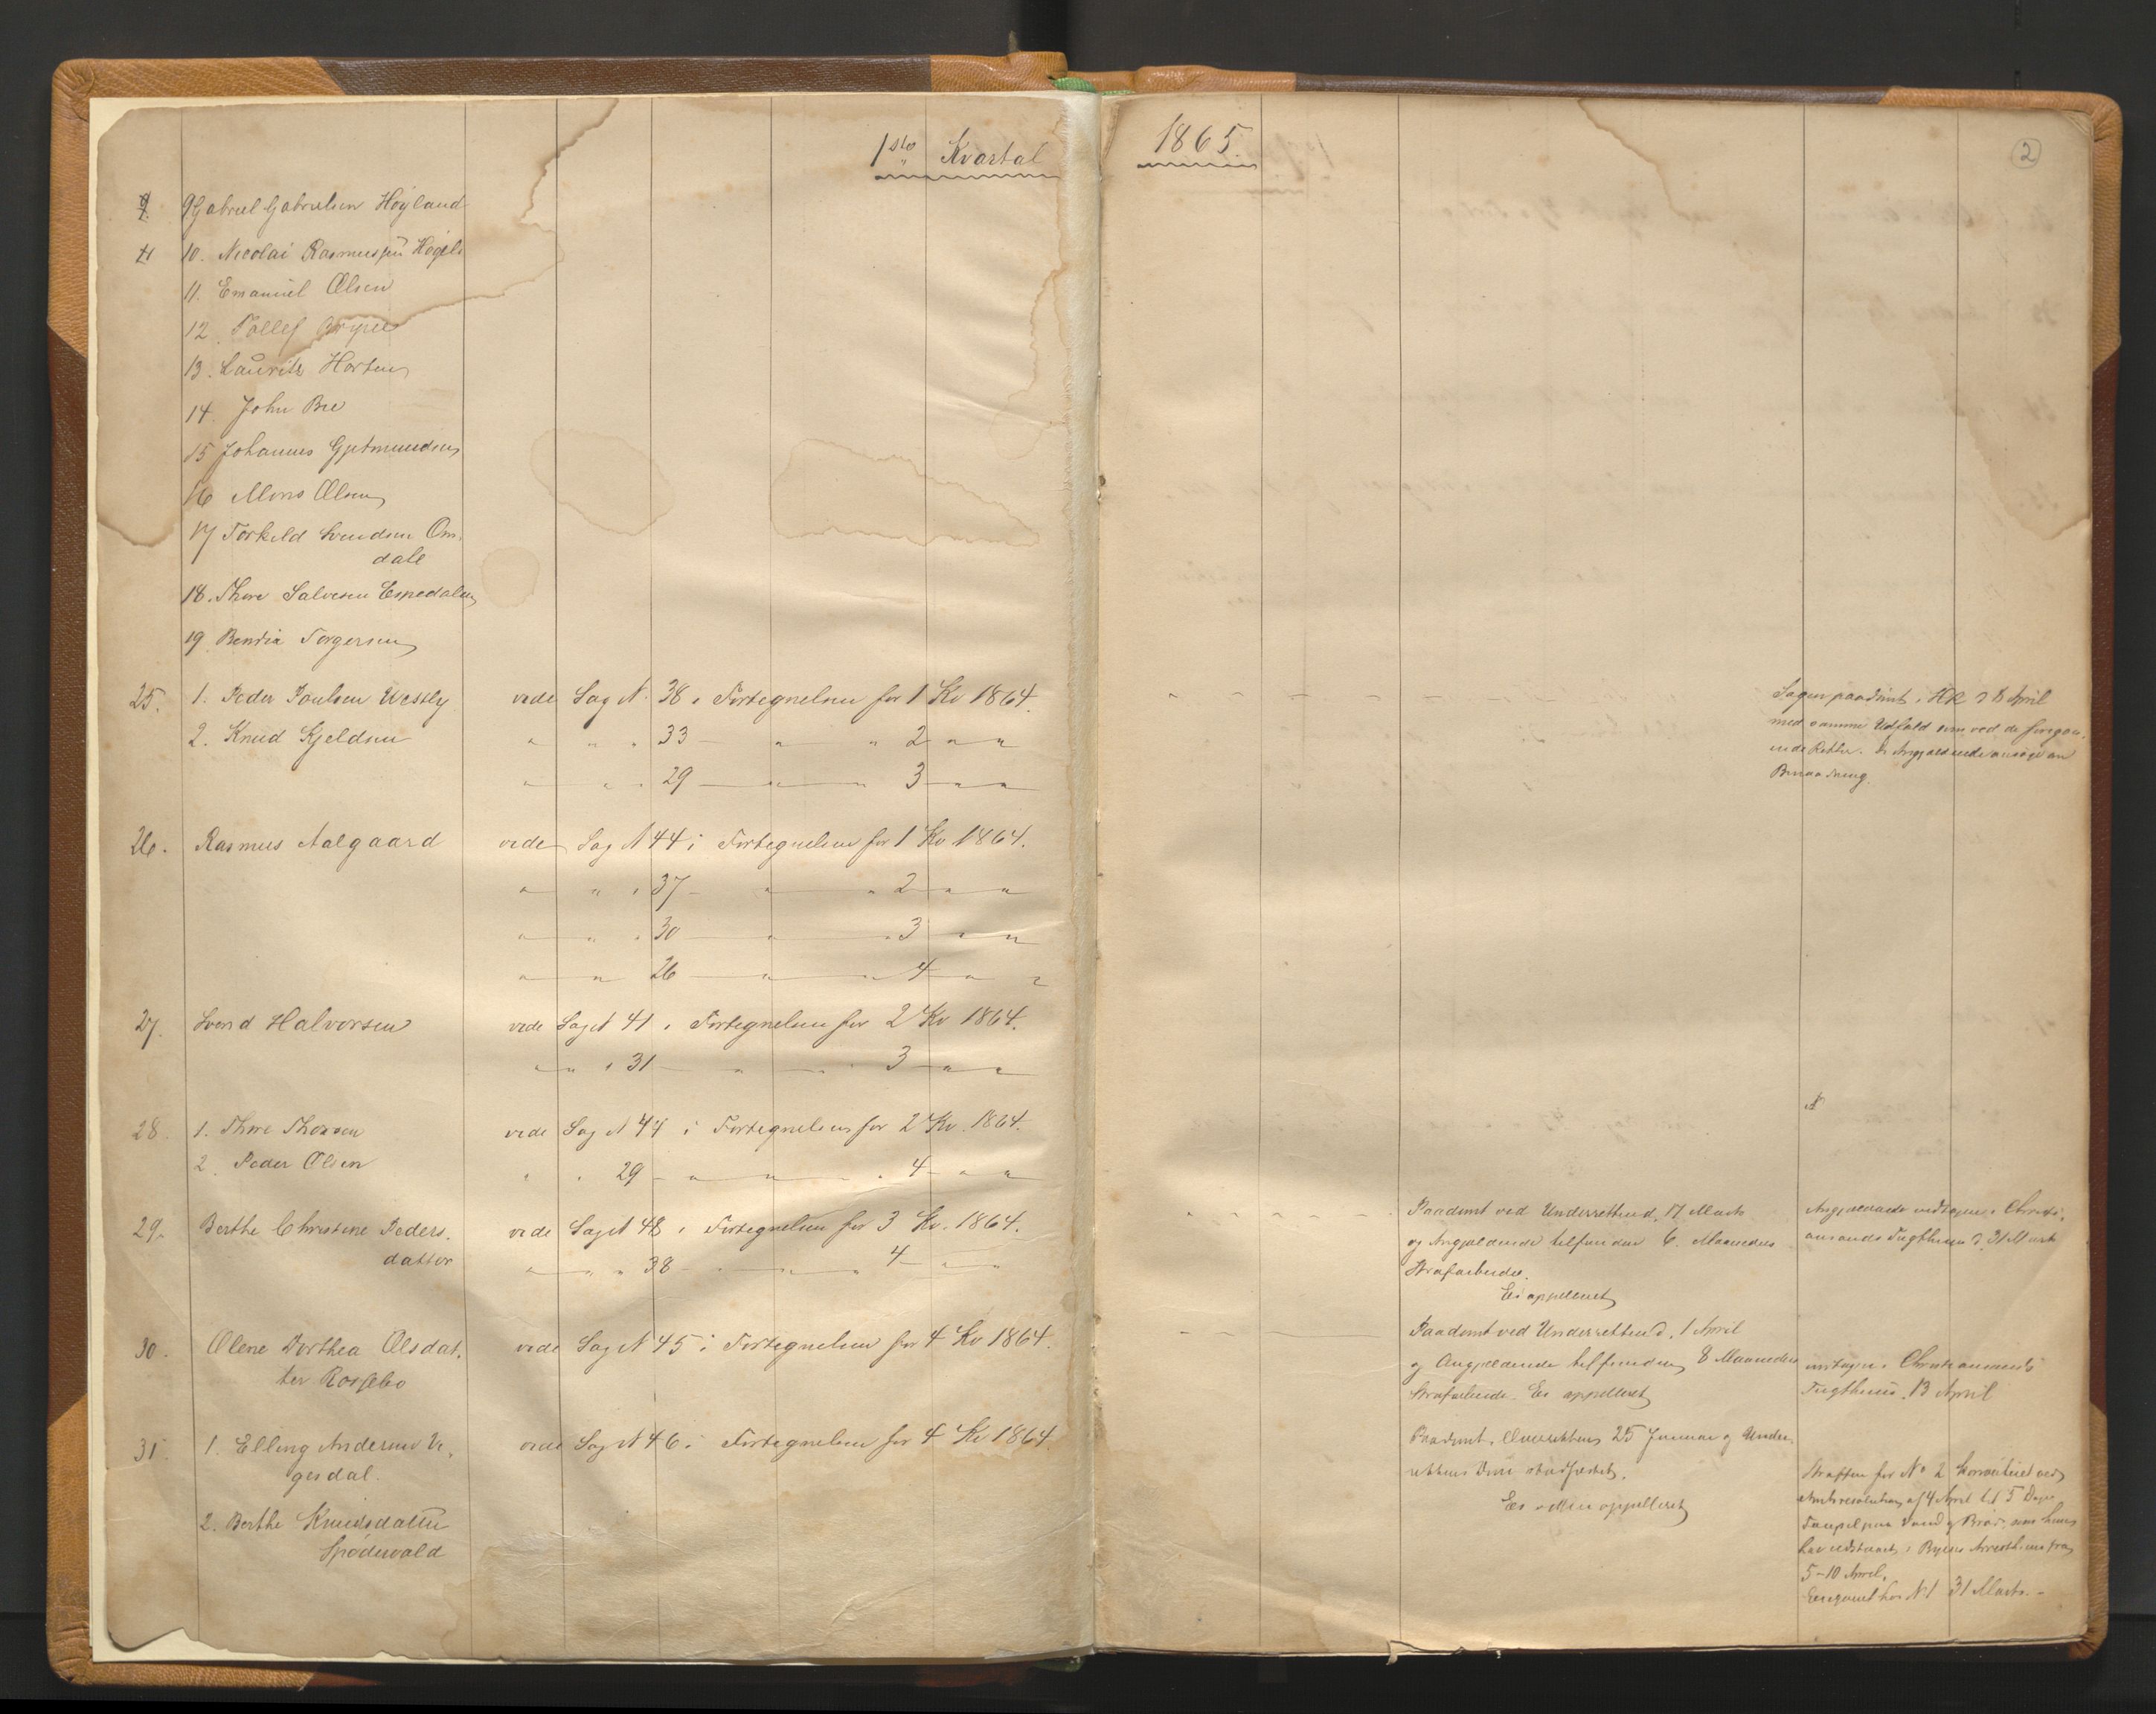 1ste Kvartal 1865.
2
9 Gabriel Gabrielsen Høyland
10. Nicolai Rasmussen
11. Emanuel Olsen
12. Tollef
13. Lauritz Hortens
14. John Bre
15 Johannes Gutmundsen
16 Mons Olsen
17 Torkild Svendsen Om,
dale
18. Thore Salvesen Espedalen
19. Bendix Torgersen
25. 1. Peder Poulsen Westly vide Sag N. 38 i Fortegnelsen for 1 Kv 1864.
2. Knud Kjeldsen " " " 33 — " " 2 " "
" " " 29 — " — " 3 — " "
Sagen paadømt i HR d 8 April
med samme Udfald som ved de foregaa,
ende Retter. De Angjældende ansøge om
Benaadning.
26. Rasmus Aalgaard vide Sag N 44 i Fortegnelsen for 1 Kv 1864.
" " " 37 — " " 2 — " "
" " " 30 — " — " 3 — " "
" " 26 — " — " 4 — " "
27. Svend Halvorsen vide Sag N 41 i Fortegnelsen for 2 Kv 1864.
" " " 31 — " — " 3 — " "
28. 1. Thore Thorsen vide Sag N 44 i Fortegnelsen for 2 Kv. 1864.
2. Peder Olsen " " 29 — " — " — " 4 — " "
29. Berthe Christine Peders, vide Sag N 48 i Fortegnelsen for 3 Kv. 1864.
datter " " " 38 — " — " — " 4 — " "
Paadømt ved Underretten d. 17 Marts
og Angjældende tilfunden 6 Maaneders
Strafarbeide.
Ei appelleret
Angjældende modtagen i Christi,
ansands Tugthuus d. 31 Marts
30. Olene Dorthea Olsdat, vide Sag N 45 i Fortegnelsen for 4 Kv 1864.
ter Rossebo
Paadømt ved Underretten d. 1 April
og Angjældende tilfunden 8 Maaneders
Strafarbeide. Ei appelleret
modtagen i Christiansands
Tugthuus. 13 April
31. 1. Elling Andersen Ve, vide Sag N 46 i Fortegnelsen for 4 Kv 1864
gesdal.
2. Berthe Knudsdatter
Spødervold
Paadømt i Overretten 25 Januar og Under,
rettens Dom stadfæstet.
Ei videre appelleret
Straffen for No 2 konverteret ved
Amtsresolution af 4 April til 5 Dages
Fængsel paa Vand og Brød, som hun
har udstaaet i Byens Arresthuus fra
5-10 April.
Exeqveret hos N 1 31 Marts. -